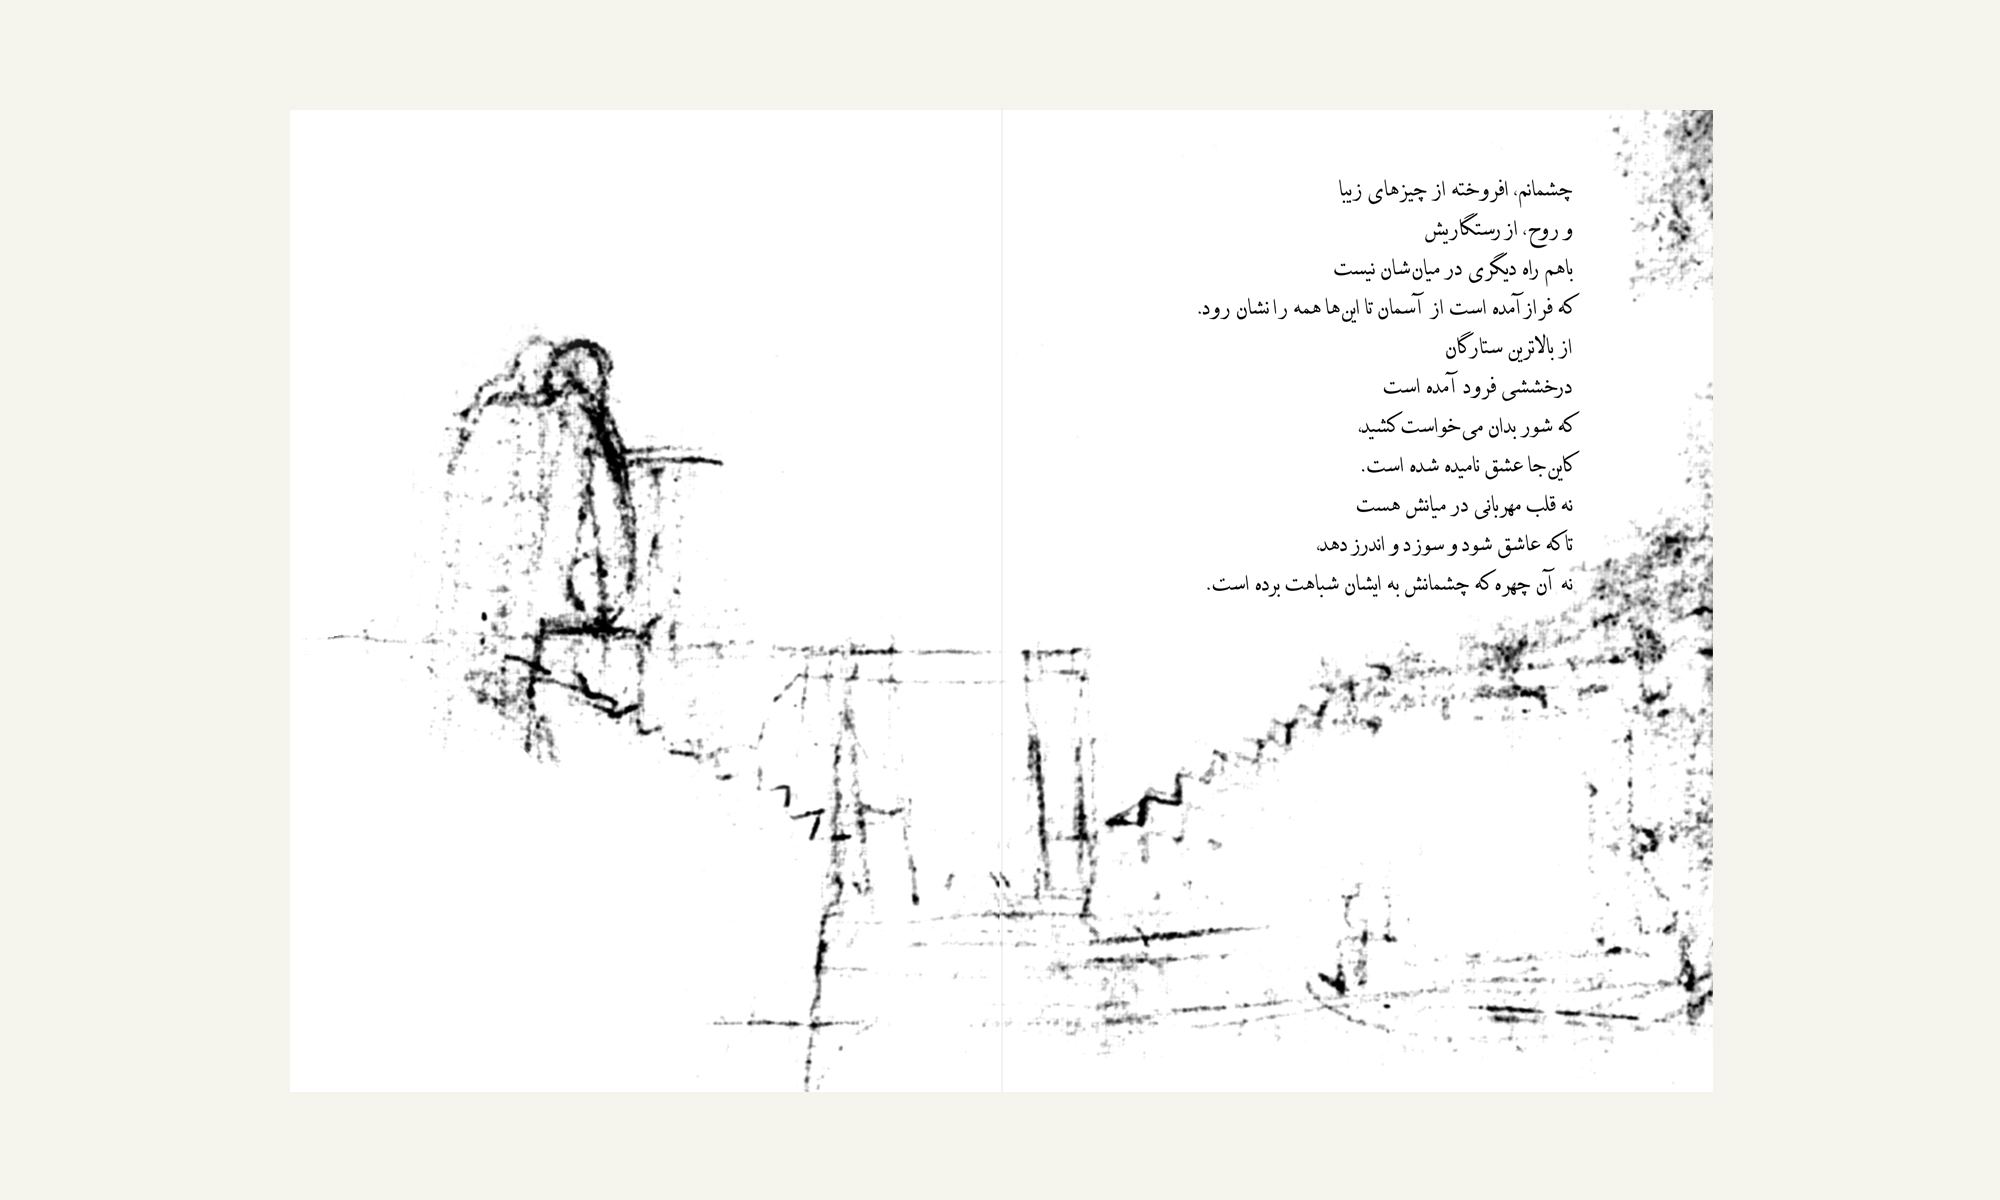 چشمانم، افروخته از چیزهای زیبا
و روح، از رستگاریش
باهم راه دیگری در میان‌شان نیست
که فرازآمده است از آسمان تا این‌ها همه را نشان رود.
از بالاترین ستارگان
درخششی فرود آمده است
که شور بدان می‌خواست کشید،
کاین‌جا عشق نامیده شده است.
نه قلب مهربانی در میانش هست
تا که عاشق شود و سوزد و اندرز دهد،
نه آن چهره که چشمانش به ایشان شباهت برده است.